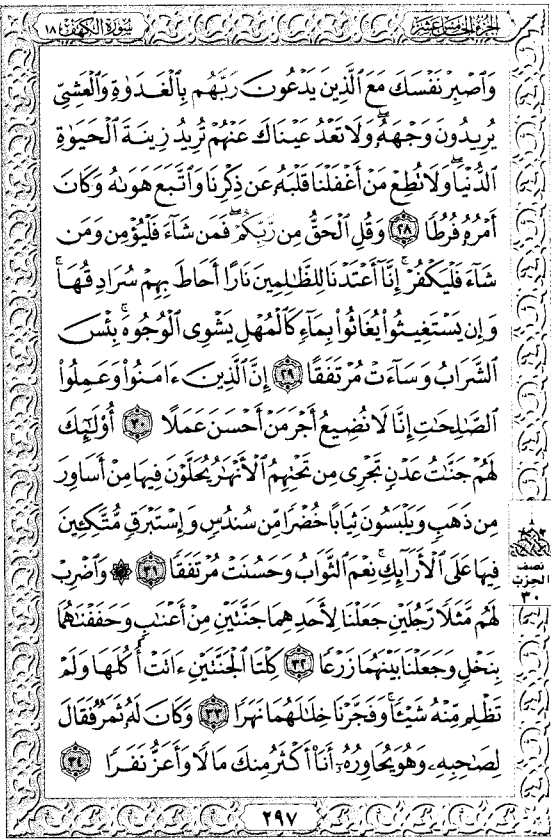 سُورَةُ الكَهْفِ ١٨
الجُزْءُ الخَامِسَ عَشَرَ
وَٱصْبِرْ نَفْسَكَ مَعَ ٱلَّذِينَ يَدْعُونَ رَبَّهُم بِٱلْغَدَوٰةِ وَٱلْعَشِىِّ
يُرِيدُونَ وَجْهَهُۥۖ وَلَا تَعْدُ عَيْنَاكَ عَنْهُمْ تُرِيدُ زِينَةَ ٱلْحَيَوٰةِ
ٱلدُّنْيَاۖ وَلَا تُطِعْ مَنْ أَغْفَلْنَا قَلْبَهُۥ عَن ذِكْرِنَا وَٱتَّبَعَ هَوَىٰهُ وَكَانَ
أَمْرُهُۥ فُرُطًا ٢٨ وَقُلِ ٱلْحَقُّ مِن رَّبِّكُمْۖ فَمَن شَآءَ فَلْيُؤْمِن وَمَن
شَآءَ فَلْيَكْفُرْۚ إِنَّآ أَعْتَدْنَا لِلظَّـٰلِمِينَ نَارًا أَحَاطَ بِهِمْ سُرَادِقُهَاۚ
وَإِن يَسْتَغِيثُوا۟ يُغَاثُوا۟ بِمَآءٍ كَٱلْمُهْلِ يَشْوِى ٱلْوُجُوهَۚ بِئْسَ
ٱلشَّرَابُ وَسَآءَتْ مُرْتَفَقًا ٢٩ إِنَّ ٱلَّذِينَ ءَامَنُوا۟ وَعَمِلُوا۟
ٱلصَّـٰلِحَـٰتِ إِنَّا لَا نُضِيعُ أَجْرَ مَنْ أَحْسَنَ عَمَلًا ٣٠ أُو۟لَـٰٓئِكَ
لَهُمْ جَنَّـٰتُ عَدْنٍ تَجْرِى مِن تَحْتِهِمُ ٱلْأَنْهَـٰرُ يُحَلَّوْنَ فِيهَا مِنْ أَسَاوِرَ
مِن ذَهَبٍ وَيَلْبَسُونَ ثِيَابًا خُضْرًا مِّن سُندُسٍ وَإِسْتَبْرَقٍ مُّتَّكِـِٔينَ
فِيهَا عَلَى ٱلْأَرَآئِكِۚ نِعْمَ ٱلثَّوَابُ وَحَسُنَتْ مُرْتَفَقًا ٣١ ۞ وَٱضْرِبْ
لَهُم مَّثَلًا رَّجُلَيْنِ جَعَلْنَا لِأَحَدِهِمَا جَنَّتَيْنِ مِنْ أَعْنَـٰبٍ وَحَفَفْنَـٰهُمَا
بِنَخْلٍ وَجَعَلْنَا بَيْنَهُمَا زَرْعًا ٣٢ كِلْتَا ٱلْجَنَّتَيْنِ ءَاتَتْ أُكُلَهَا وَلَمْ
تَظْلِم مِّنْهُ شَيْـًٔاۚ وَفَجَّرْنَا خِلَـٰلَهُمَا نَهَرًا ٣٣ وَكَانَ لَهُۥ ثَمَرٌ فَقَالَ
لِصَـٰحِبِهِۦ وَهُوَ يُحَاوِرُهُۥٓ أَنَا۠ أَكْثَرُ مِنكَ مَالًا وَأَعَزُّ نَفَرًا ٣٤
نصف
الحزب
٣٠
٢٩٧